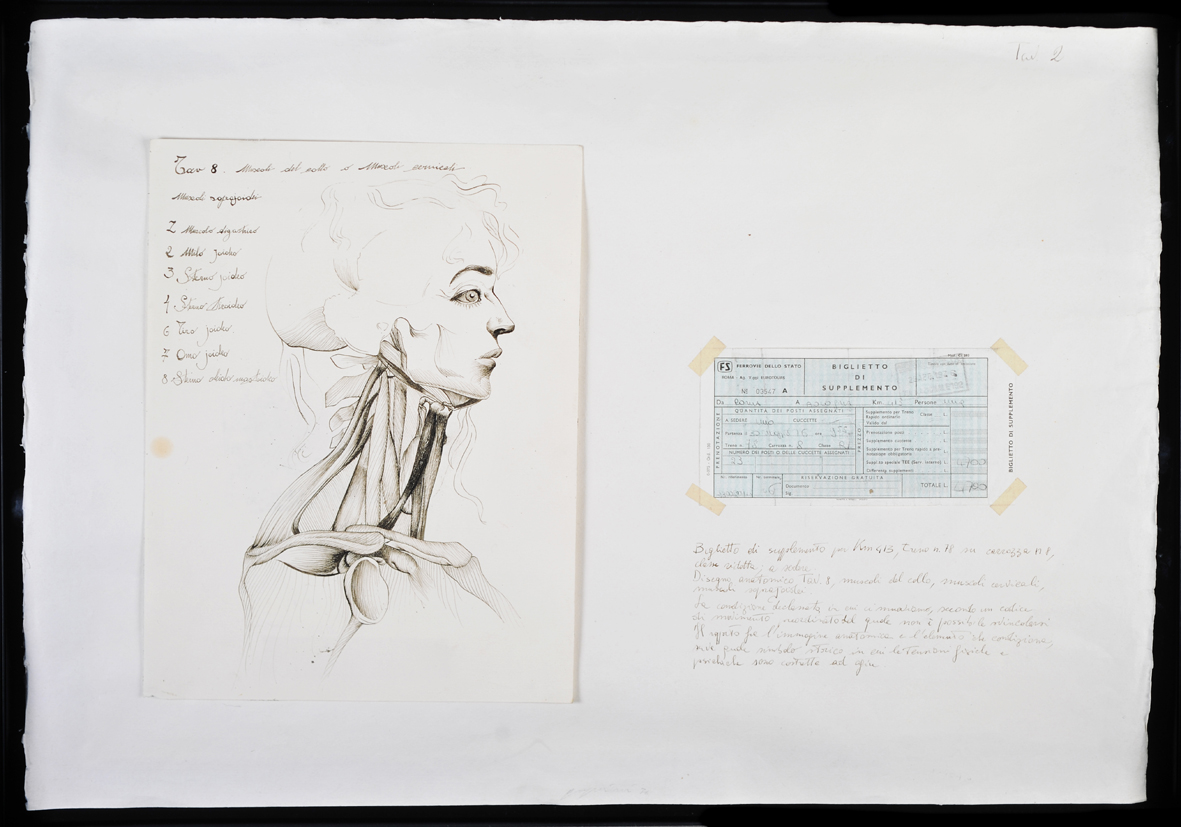 Tav. 2
Tav 8. Muscoli del collo o Muscoli cervicali
Muscoli soprajoidei
1 Muscolo digastrico
2 Milo joideo
3 Sterno joideo
4 Sterno tiroideo
6 Tiro joideo
7 Omo joideo
8 Sterno cleido mastoideo
FS FERROVIE DELLO STATO
BIGLIETTO
DI
SUPPLEMENTO
ROMA - Ag. Viaggi EUROTOURS
Nº 03947 A
Da Roma A Km 413 Persone una
QUANTITÀ DEI POSTI ASSEGNATI
N. SEDERE una CUCCETTE
Partenza il ore
Treno n. 78 Carrozza n. 8 Classe
NUMERO DEI POSTI O DELLE CUCCETTE ASSEGNATI
PRENOTAZIONE
PREZZO
Supplemento per Treni
Rapidi ordinario Classe L.
Valido dal
Prenotazione posti L.
Supplemento cuccette L.
Supplemento per Treno rapido a pre-
notazione obbligatoria L.
Suppl.to speciale TEE (Serv. interno) L.
Differenza supplementi L.
RISERVAZIONE GRATUITA
Documento
TOTALE L.
BIGLIETTO DI SUPPLEMENTO
Biglietto di supplemento per Km 413, treno n. 78 in carrozza n. 8,
classe ridotta, a sedere
Disegno anatomico Tav. 8, muscoli del collo, muscoli cervicali,
muscoli
La condizione in cui ci muoviamo, secondo un codice
di movimento, del quale non è possibile svincolarsi
Il l'immagine anatomica e l'elemento che condiziona,
quale simbolo storico in cui le tensioni fisiche e
psichiche sono costrette ad agire